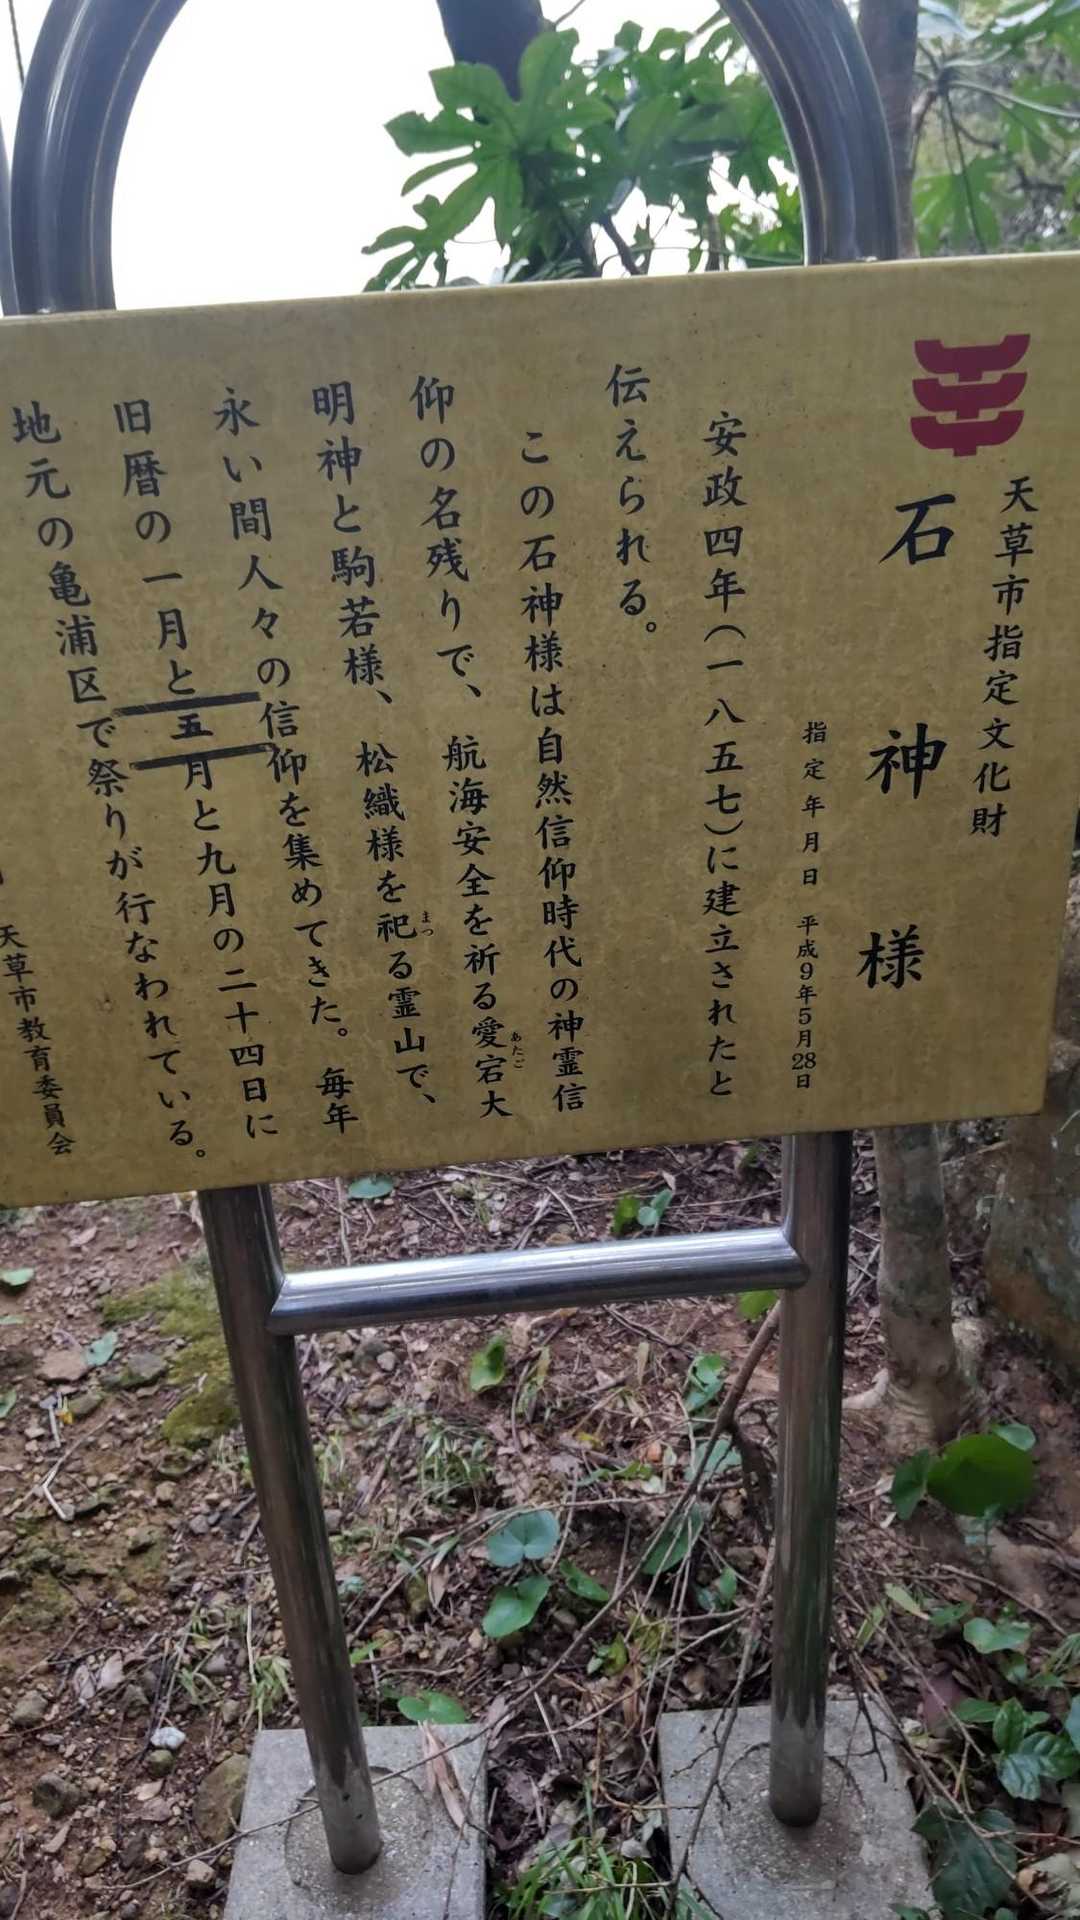 天草市指定文化財
石神様
指定年月日 平成9年5月28日
安政四年(一八五七)に建立されたと
伝えられる。
この石神様は自然信仰時代の神霊信
仰の名残りで、航海安全を祈る愛宕大
あたご
明神と駒若様、松織様を祀る霊山で、
まつ
永い間人々の信仰を集めてきた。毎年
旧暦の一月と五月と九月の二十四日に
地元の亀浦区で祭りが行なわれている。
天草市教育委員会